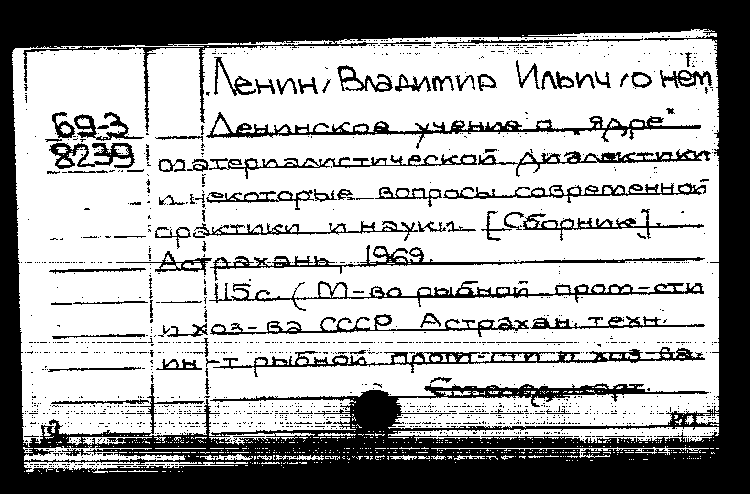 Ленин, Владимир Ильич, о нём
69-3
8239
Ленинское учение о „ядре"
материалистической диалектики
и некоторые вопросы современной
практики и науки. [Сборник].
Астрахань, 1969.
115с. (М-во рыбной пром-сти
и хоз-ва СССР. Астрахан. техн.
ин-т рыбной пром-сти и хоз-ва.